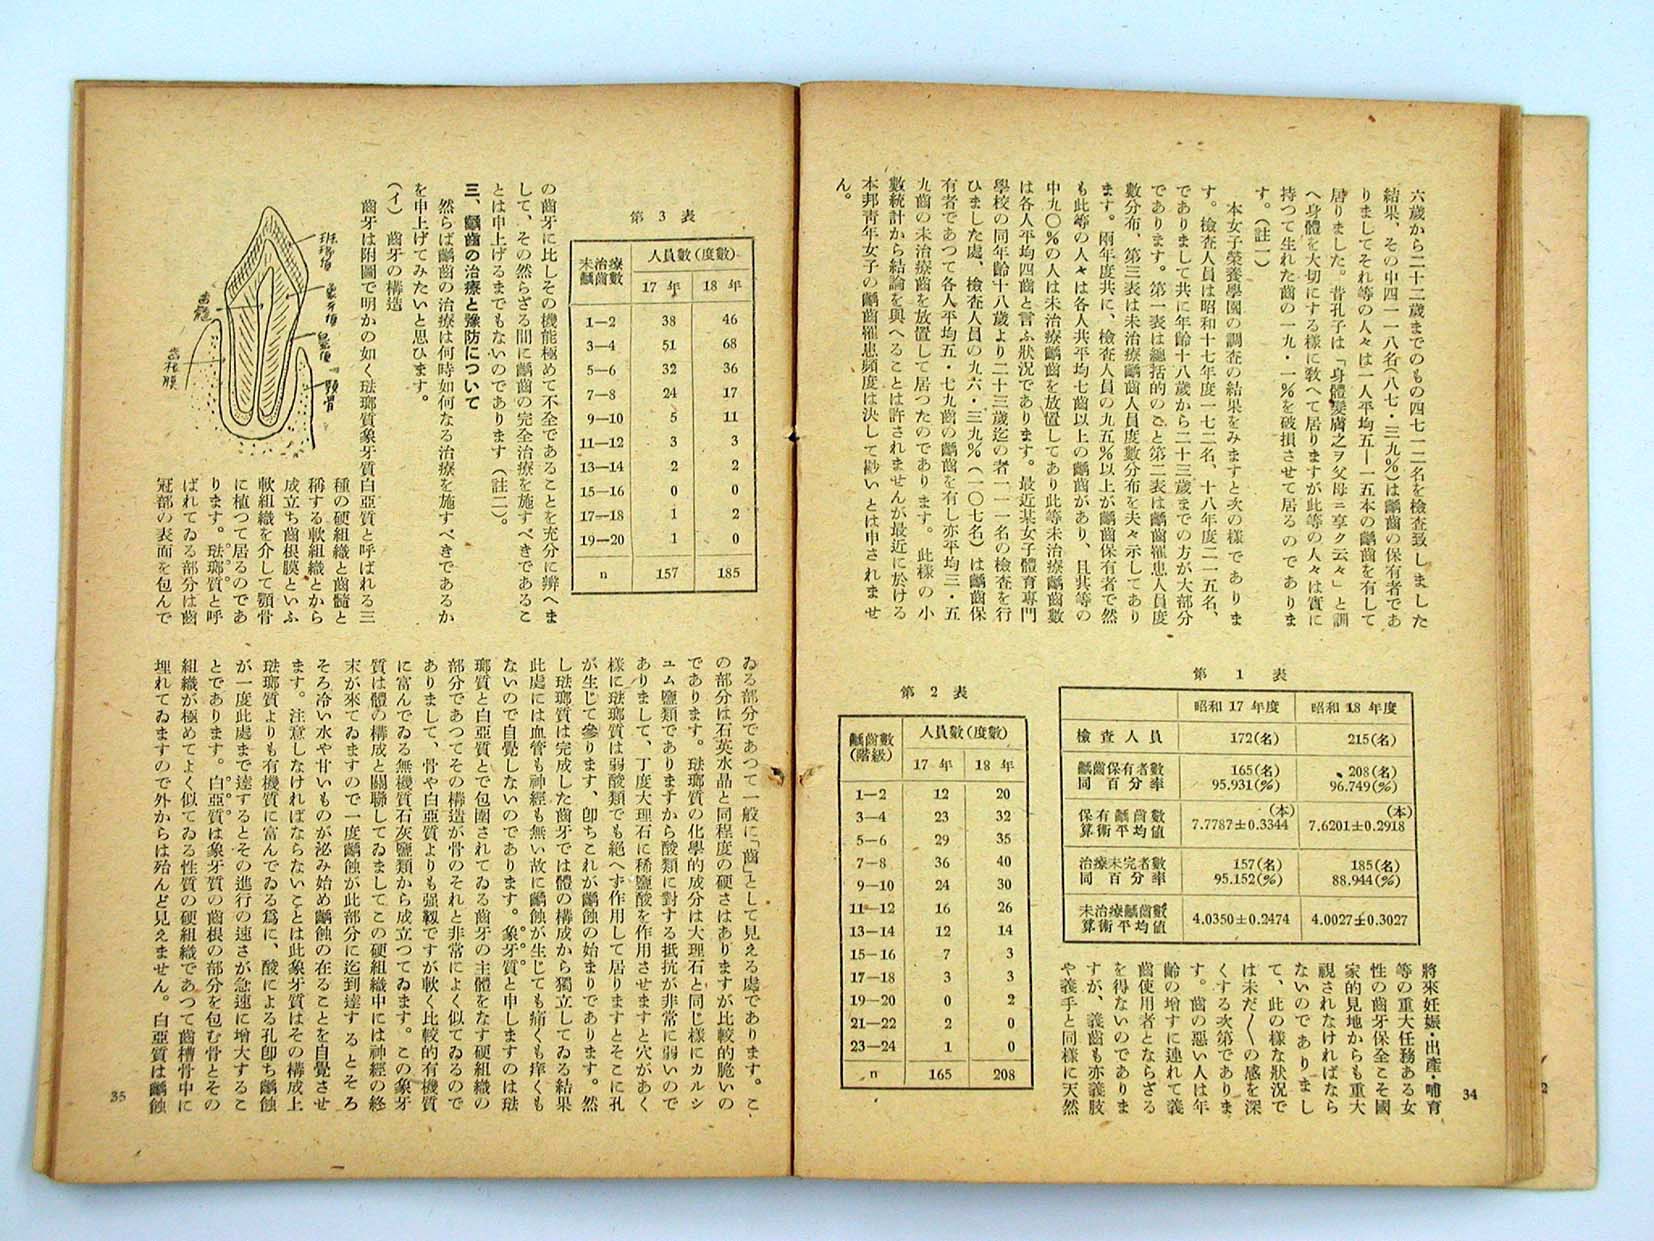 六歲から二十二歲までのもの四七一二名を檢査致しました
結果、その中四一一八名(八七・三九%)は齲齒の保有者であ
りましてそれ等の人々は一人平均五―一五本の齲齒を有して
居りました。昔孔子は「身體髮膚之ヲ父母ニ享ク云々」と訓
へ身體を大切にする樣に敎へて居りますが此等の人々は實に
持つて生れた齒の一九・一%を破損させて居るのでありま
す。(註一)
本女子榮養學園の調査の結果をみますと次の樣でありま
す。檢査人員は昭和十七年度一七二名、十八年度二一五名、
でありまして共に年齢十八歲から二十三歲までの方が大部分
であります。第一表は總括的のごと第二表は齲齒罹患人員度
數分布、第三表は未治療齲齒人員度數分布を夫々示してあり
ます。兩年度共に、檢査人員の九五%以上が齲齒保有者で然
も此等の人々は各人共平均七齒以上の齲齒があり、且其等の
中九〇%の人は未治療齲齒を放置してあり此等未治療齲齒數
は各人平均四齒と言ふ狀況であります。最近某女子體育專門
學校の同年齢十八歲より二十三歲迄の者一一一名の檢査を行
ひました處、檢査人員の九六・三九%(一〇七名)は齲齒保
有者であつて各人平均五・七九齒の齲齒を有し亦平均三・五
九齒の未治療齒を放置して居つたのであります。此樣の小
數統計から結論を與へることは許されませんが最近に於ける
本邦靑年女子の齲齒罹患頻度は決して尠いとは申されませ
ん。
第 1 表
昭和 17 年度 昭和 18 年度
檢査人員 172(名) 215(名)
齲齒保有者數 165(名) 208(名)
同百分率 95.931(%) 96.749(%)
保有齲齒數 (本) (本)
算術平均値 7.7787±0.3344 7.6201±0.2918
治療未完者數 157(名) 185(名)
同百分率 95.152(%) 88.944(%)
未治療齲齒數
算術平均値 4.0350±0.2474 4.0027±0.3027
第 2 表
齲齒數(階級) 人員數(度數)
17 年 18 年
1—2 12 20
3—4 23 32
5—6 29 35
7—8 36 40
9—10 24 30
11—12 16 26
13—14 12 14
15—16 7 3
17—18 3 3
19—20 0 2
21—22 2 0
23—24 1 0
n 165 208
將來妊娠・出產・哺育
等の重大任務ある女
性の齒牙保全こそ國
家的見地からも重大
視されなければなら
ないのでありまし
て、此の樣な狀況で
は未だ〱の感を深
くする次第でありま
す。齒の惡い人は年
齢の增すに連れて義
齒使用者とならざる
を得ないのでありま
すが、義齒も亦義肢
や義手と同樣に天然
34
第 3 表
未治療齲齒數 人員數(度數)
17 年 18 年
1—2 38 46
3—4 51 68
5—6 32 36
7—8 24 17
9—10 5 11
11—12 3 3
13—14 2 2
15—16 0 0
17—18 1 2
19—20 1 0
n 157 185
の齒牙に比しその機能極めて不全であることを充分に辨へま
して、その然らざる間に齲齒の完全治療を施すべきであるこ
とは申上げるまでもないのであります(註二)。
三、齲齒の治療と豫防について
然らば齲齒の治療は何時如何なる治療を施すべきであるか
を申上げてみたいと思ひます。
(イ) 齒牙の構造
齒牙は附圖で明かの如く琺瑯質象牙質白亞質と呼ばれる三
種の硬組織と齒髓と
稱する軟組織とから
成立ち齒根膜といふ
軟組織を介して顎骨
に植つて居るのであ
ります。琺瑯質と呼
ばれてゐる部分は齒
冠部の表面を包んで
琺瑯質
象牙質
齒髓
顎骨
齒齦
齒根膜
ゐる部分であつて一般に「齒」として見える處であります。こ
の部分は石英水晶と同程度の硬さはありますが比較的脆いの
であります。琺瑯質の化學的成分は大理石と同じ樣にカルシ
ユム鹽類でありますから酸類に對する抵抗が非常に弱いので
ありまして、丁度大理石に稀鹽酸を作用させますと穴があく
樣に琺瑯質は弱酸類でも絶へず作用して居りますとそこに孔
が生じて參ります、卽ちこれが齲蝕の始まりであります。然
し琺瑯質は完成した齒牙では體の構成から獨立してゐる結果
此處には血管も神經も無い故に齲蝕が生じても痛くも痒くも
ないので自覺しないのであります。象牙質と申しますのは琺
瑯質と白亞質とで包圍されてゐる齒牙の主體をなす硬組織の
部分であつてその構造が骨のそれと非常によく似てゐるので
ありまして、骨や白亞質よりも强靱ですが軟く比較的有機質
に富んでゐる無機質石灰鹽類から成立つてゐます。この象牙
質は體の構成と關聯してゐましてこの硬組織中には神經の終
末が來てゐますので一度齲蝕が此部分に迄到達するとそろ
そろ冷い水や甘いものが泌み始め齲蝕の在ることを自覺させ
ます。注意しなければならないことは此象牙質はその構成上
琺瑯質よりも有機質に富んでゐる爲に、酸による孔卽ち齲蝕
が一度此處まで達するとその進行の速さが急速に增大するこ
とであります。白亞質は象牙質の齒根の部分を包む骨とその
組織が極めてよく似てゐる性質の硬組織であつて齒槽骨中に
埋れてゐますので外からは殆んど見えません。白亞質は齲蝕
35